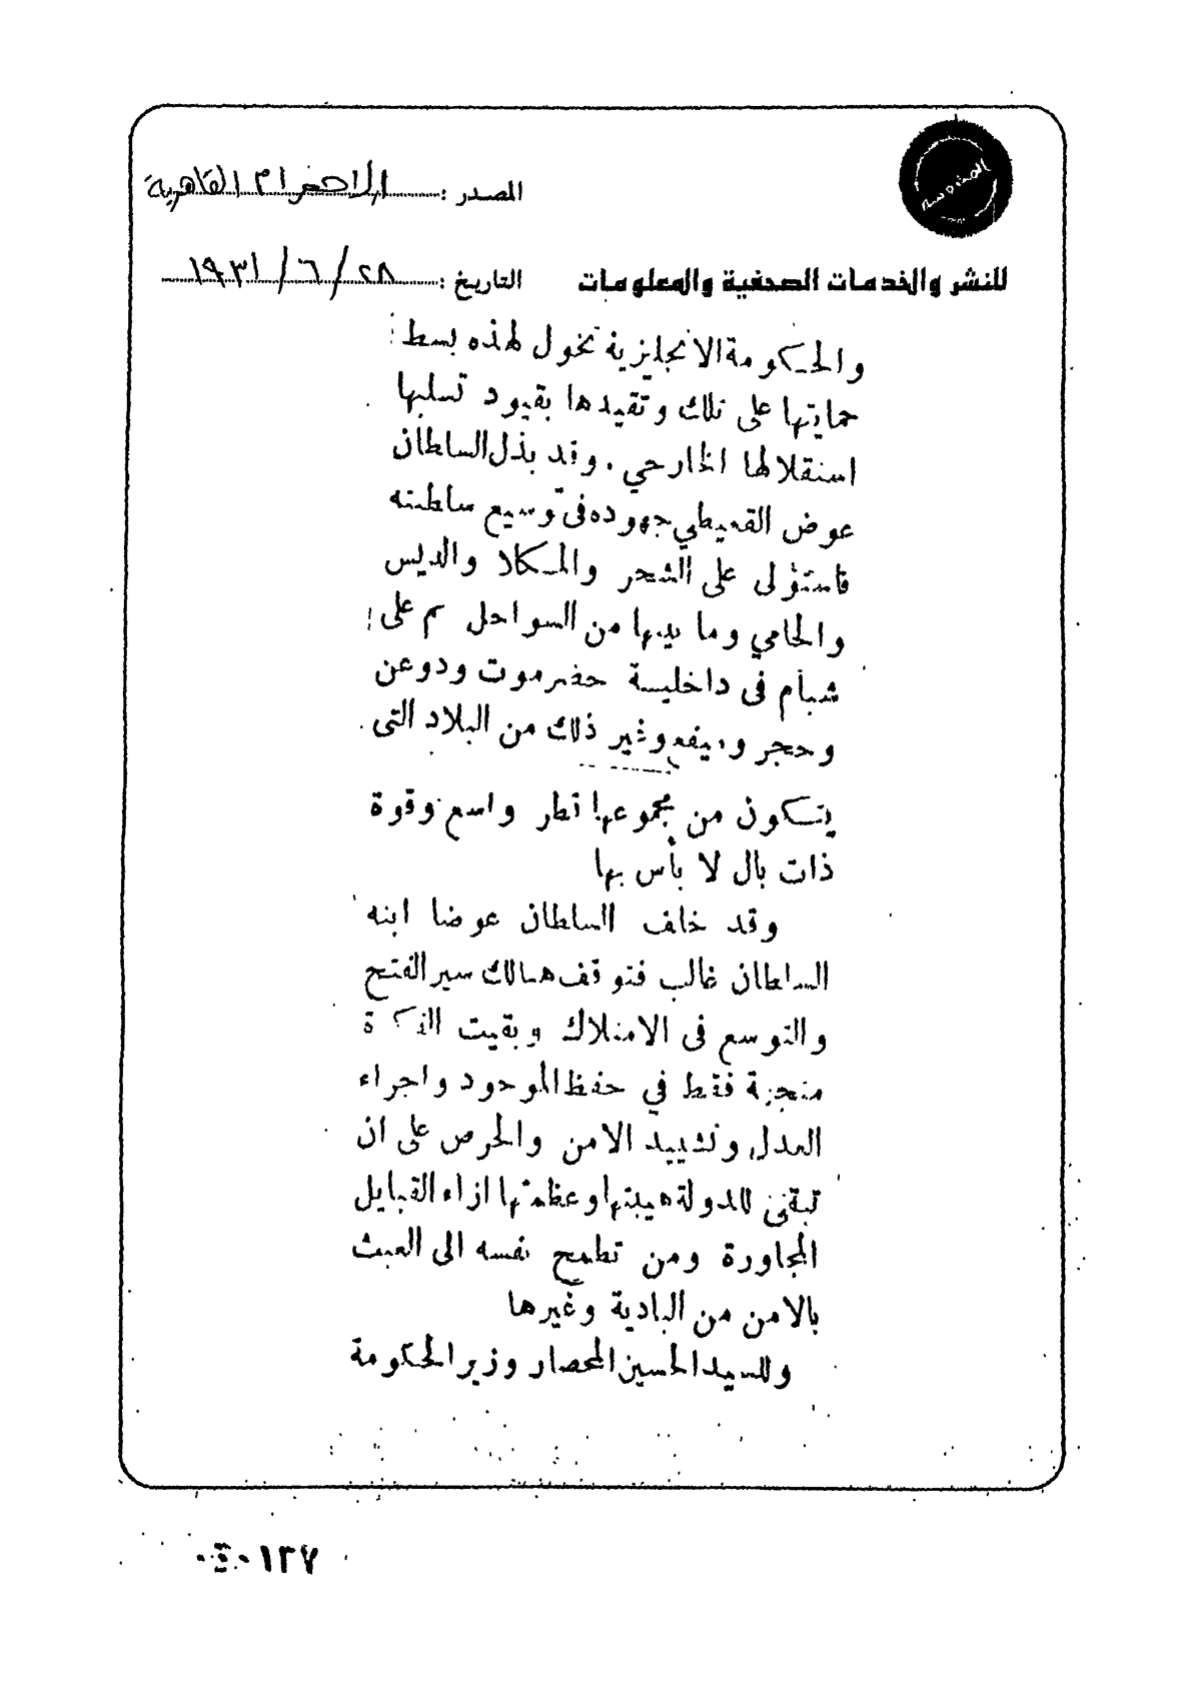 المحروسة
المصدر : الاهرام القاهرية
للنشر والخدمات الصحفية والمعلومات
التاريخ : ٢٨ / ٦ / ١٩٣١
والحكومة الانجليزية تخول لهذه بسط
حمايتها على تلك وتقيدها بقيود تسلبها
استقلالها الخارجي . وقد بذل السلطان
عوض القعيطي جهوده في توسيع سلطته
فاستولى على الشحر والمكلا والديس
والحامي وما يليها من السواحل ثم على
شبام في داخلية حضرموت ودوعن
وحجر وميفع وغير ذلك من البلاد التى
يتكون من مجموعها قطر واسع وقوة
ذات بال لا بأس بها
وقد خلف السلطان عوضا ابنه
السلطان غالب فتوقف هنالك سير الفتح
والتوسع فى الامتلاك وبقيت الفكرة
متجهة فقط في حفظ الموجود واجراء
العدل وتشييد الامن والحرص على ان
تبقى للدولة هيبتها وعظمتها ازاء القبايل
المجاورة ومن تطمح نفسه الى العبث
بالامن من البادية وغيرها
وللسيد الحسين المحضار وزير الحكومة